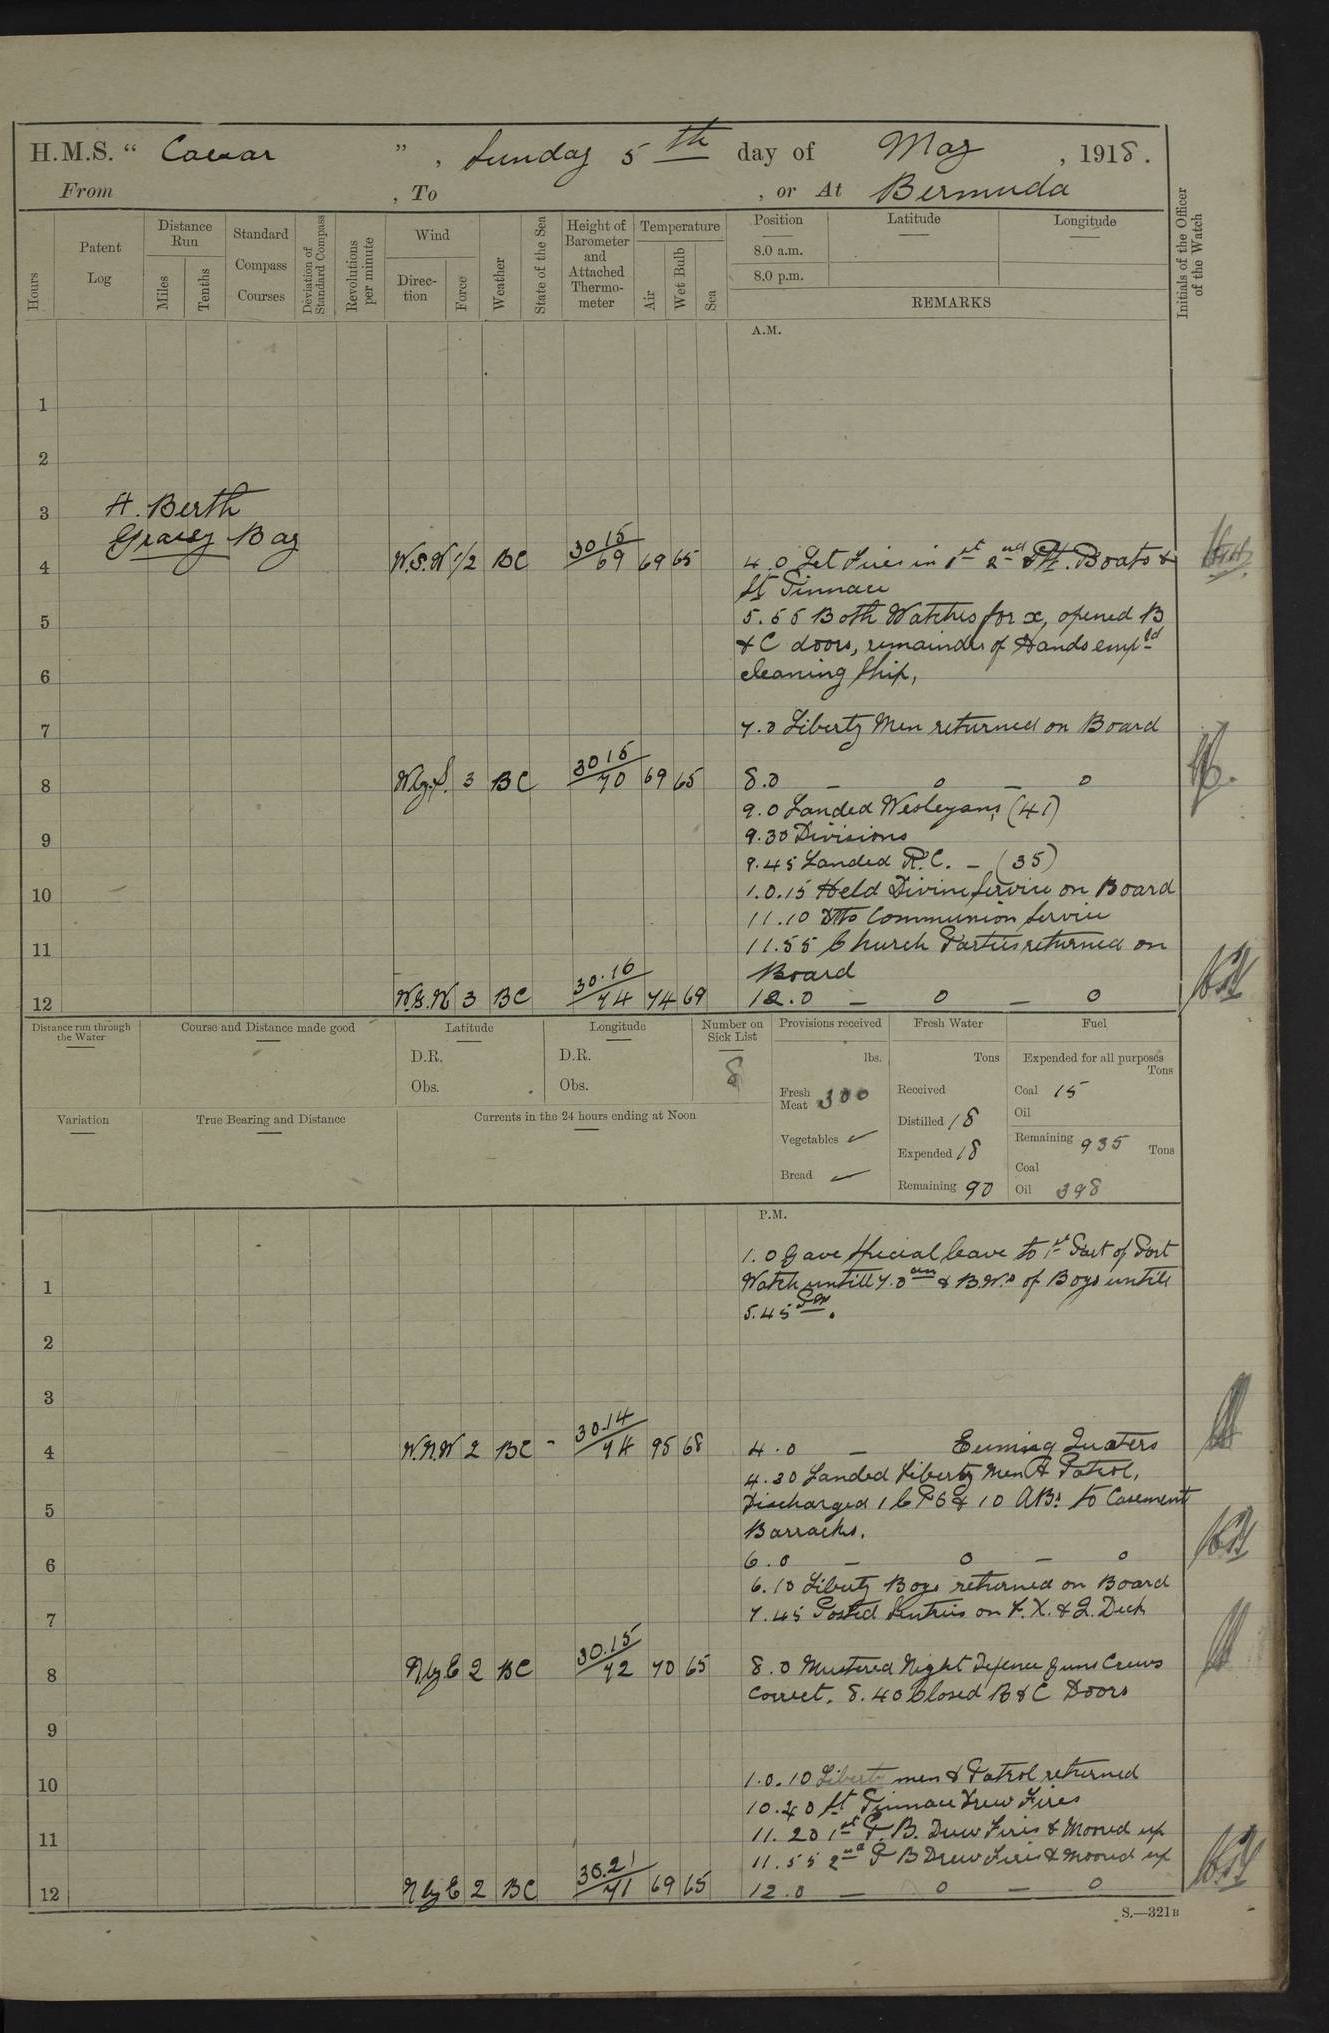 H.M.S. “ Caesar ” , Sunday 5th day of May , 1918.
From , To , or At Bermuda
Hours
Patent Log
Distance Run
Miles
Tenths
Standard Compass Courses
Deviation of Standard Compass
Revolutions per minute
Wind
Direction
Force
Weather
State of the Sea
Height of Barometer and Attached Thermometer
Temperature
Air
Wet Bulb
Sea
Position
8.0 a.m.
8.0 p.m.
Latitude
Longitude
REMARKS
Initials of the Officer of the Watch
A.M.
1
2
3 A. Berth
Grassy Bay
4 W.S.W 1/2 BC 30 15/69 69 65 4.0 Let Fires in 1st 2nd Pkt. Boats &
St Pinnace
5 5.55 Both Watches for x, opened B
& C doors, remainder of Hands empld
6 cleaning Ship,
7 7.0 Liberty Men returned on Board
8 W.by.S. 3 BC 30 15/70 69 65 8.0 — 0 — 0
9.0 Landed Wesleyans, (41)
9 9.30 Divisions
9.45 Landed R.C. — (35)
10 1.0.15 Held Divine Service on Board
11.10 Dtto Communion Service
11 11.55 Church Parties returned on
Board
12 W.S.W 3 BC 30.16/74 74 69 12.0 — 0 — 0
Distance run through the Water
Course and Distance made good
Latitude
D.R.
Obs.
Longitude
D.R.
Obs.
Number on Sick List
8
Provisions received
lbs.
Fresh Meat 300
Vegetables ✓
Bread ✓
Fresh Water
Tons
Received
Distilled 18
Expended 18
Remaining 90
Fuel
Expended for all purposes
Tons
Coal 15
Oil
Remaining 935 Tons
Coal
Oil 398
Variation
True Bearing and Distance
Currents in the 24 hours ending at Noon
P.M.
1.0 Gave Special leave to 1st Part of Port
1 Watch untill 7.0 am & B.W.s of Boys untill
5.45 Pm.
2
3
4 W.N.W 2 BC - 30.14/74 95 68 4.0 — Evening Quaters
4.30 Landed Liberty Men & Patrol,
5 Discharged 1 C P O & 10 ABs to Casement
Barracks.
6 6.0 — 0 — 0
6.10 Liberty Boys returned on Board
7 7.45 Posted Sentries on F.X. & Q. Deck
8 N by E 2 BC 30.15/72 70 65 8.0 Mustered Night Defence guns Crews
correct. 8.40 Closed B & C Doors
9
10 1.0.10 Liberty men & Patrol returned
10.40 St Pinnace Drew Fires
11 11.20 1st P.B. Drew Fires & Moored up
11.55 2nd P B Drew Fires & moored up
12 N by E 2 BC 30.21/71 69 65 12.0 — 0 — 0
S.—321B